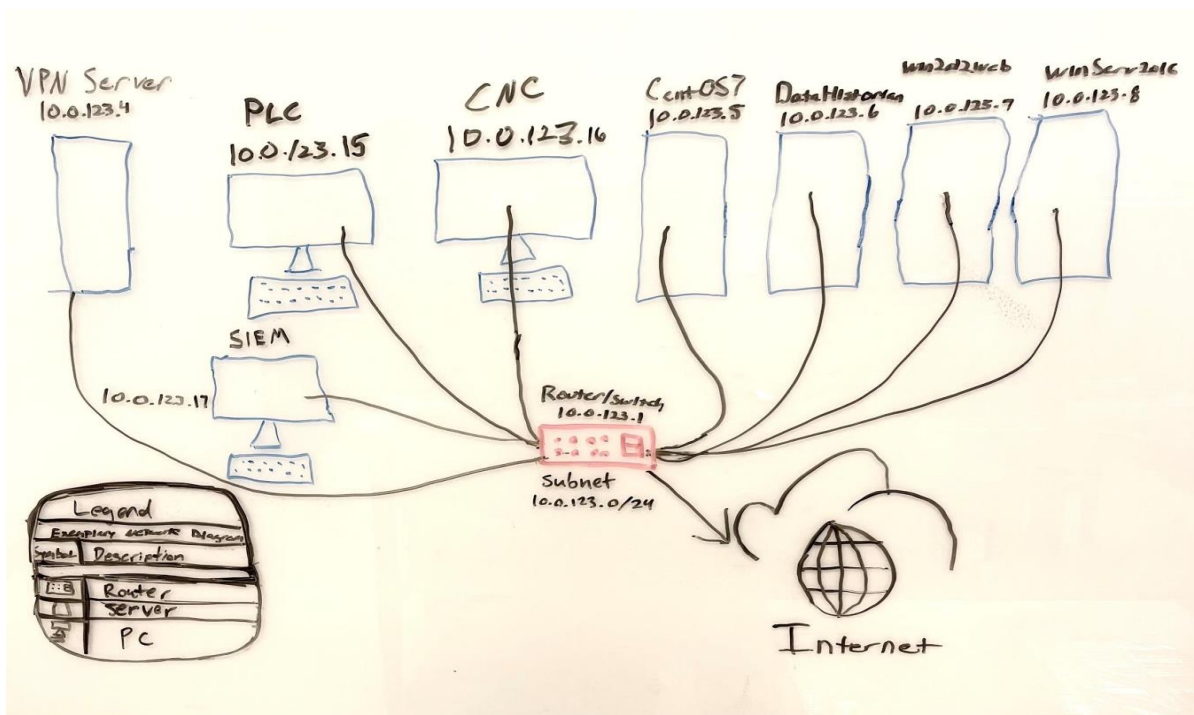 VPN Server
10.0.123.4
PLC
10.0.123.15
CNC
10.0.123.16
CentOS7
10.0.123.5
DataHistorian
10.0.123.6
win2d2web
10.0.123.7
winServ2016
10.0.123.8
SIEM
10.0.123.17
Router/switch
10.0.123.1
subnet
10.0.123.0/24
Internet
Legend
Exemplary Network Diagram
Symbol Description
Router
Server
PC